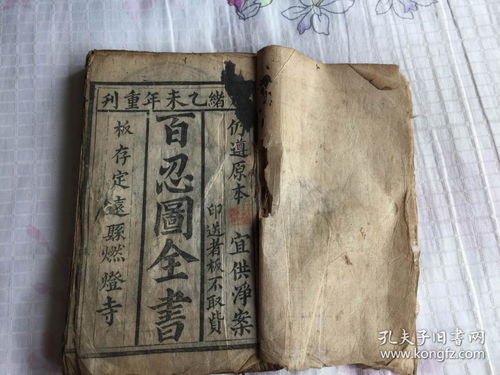 緒乙未年重刊
仍遵原本 宜供净案
印送者板不取貲
百忍圖全書
板存定遠縣燃燈寺
孔夫子旧书网
www.kongfz.com